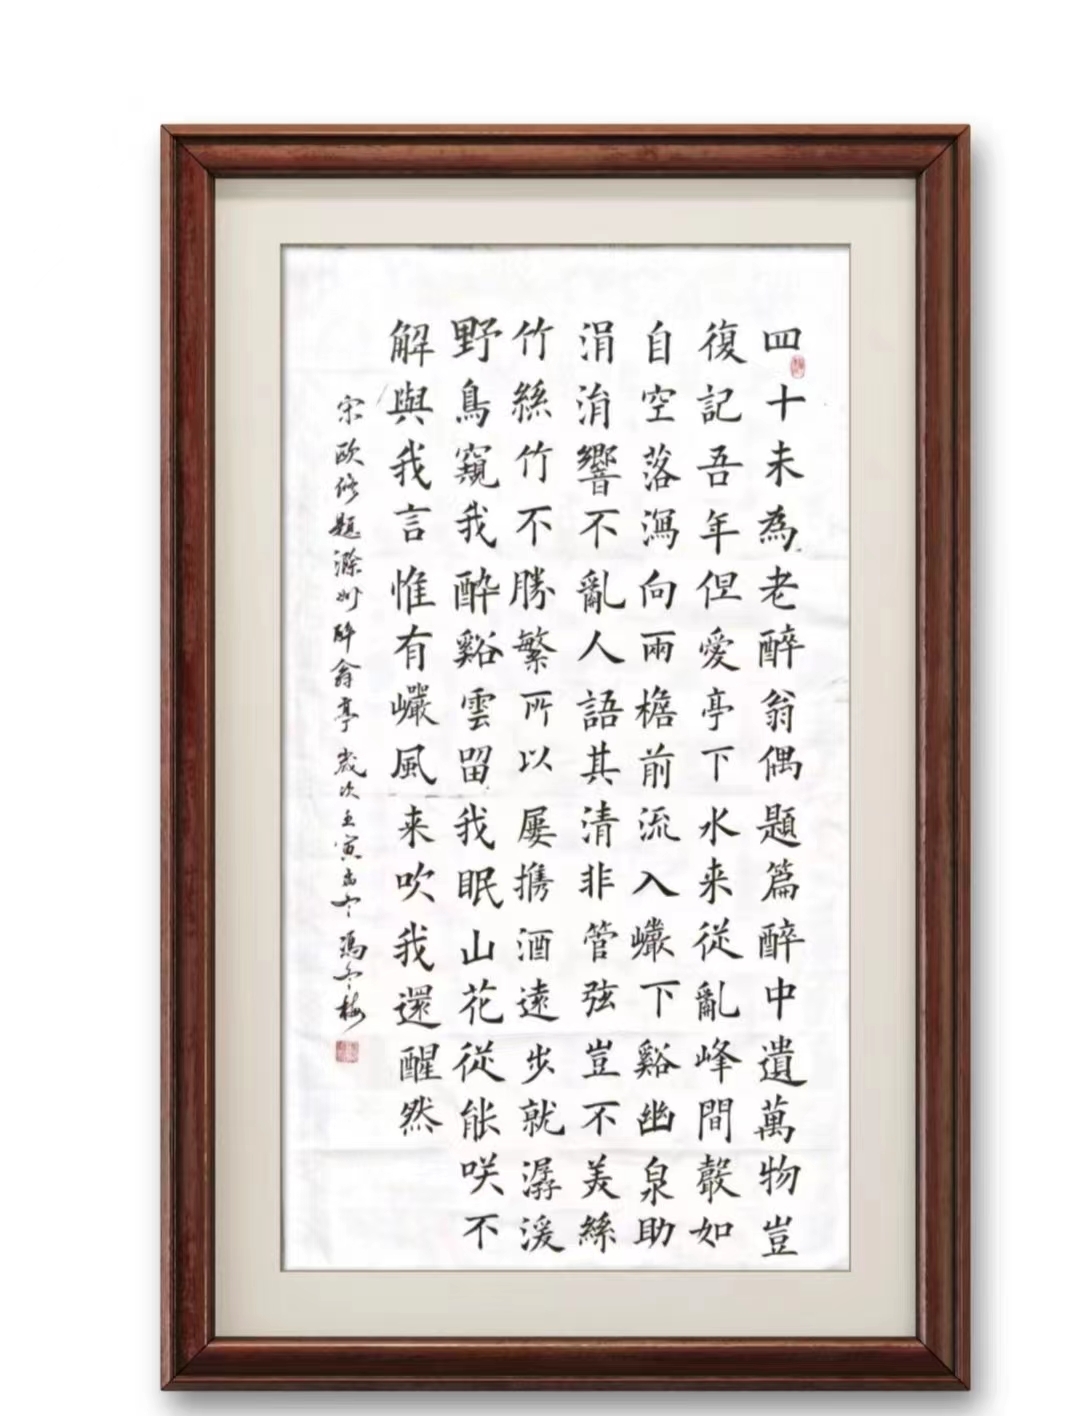 四十未為老醉翁偶題篇醉中遺萬物豈
復記吾年但愛亭下水来從亂峰間聲如
自空落瀉向兩檐前流入巗下谿幽泉助
涓涓響不亂人語其清非管弦豈不美絲
竹絲竹不勝繁所以屢攜酒遠步就潺湲
野鳥窺我醉谿雲留我眠山花從能咲不
解與我言惟有巗風来吹我還醒然
宋欧修題滁州醉翁亭歲次壬寅馮冬梅